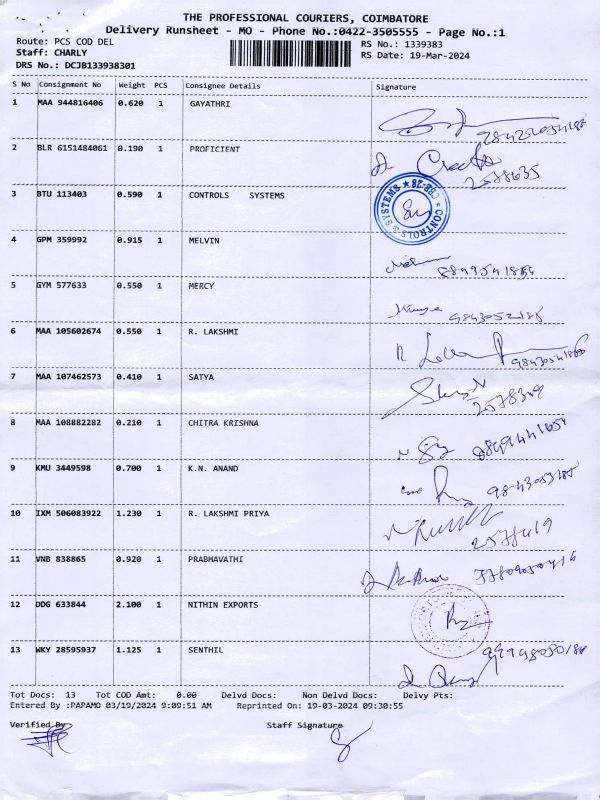 THE PROFESSIONAL COURIERS, COIMBATORE
Delivery Runsheet - MO - Phone No.:0422-3505555 - Page No.:1
Route: PCS COD DEL RS No.: 1339383
Staff: CHARLY RS Date: 19-Mar-2024
DRS No.: DCJB133938301
S No Consignment No Weight PCS Consignee Details Signature
1 MAA 944816406 0.620 1 GAYATHRI
2 BLR 6151484061 0.190 1 PROFICIENT
2578635
3 BTU 113403 0.590 1 CONTROLS SYSTEMS
CONTROLS & SYSTEMS ★ CBE-28 ★
4 GPM 359992 0.915 1 MELVIN
5 GYM 577633 0.550 1 MERCY
6 MAA 105602674 0.550 1 R. LAKSHMI
7 MAA 107462573 0.410 1 SATYA
8 MAA 108882282 0.210 1 CHITRA KRISHNA
9 KMU 3449598 0.700 1 K.N. ANAND
10 IXM 506083922 1.230 1 R. LAKSHMI PRIYA
11 VNB 838865 0.920 1 PRABHAVATHI
12 DDG 633844 2.100 1 NITHIN EXPORTS
13 WKY 28595937 1.125 1 SENTHIL
Tot Docs: 13 Tot COD Amt: 0.00 Delvd Docs: Non Delvd Docs: Delvy Pts:
Entered By :PAPAMO 03/19/2024 9:09:51 AM Reprinted On: 19-03-2024 09:30:55
Verified By Staff Signature